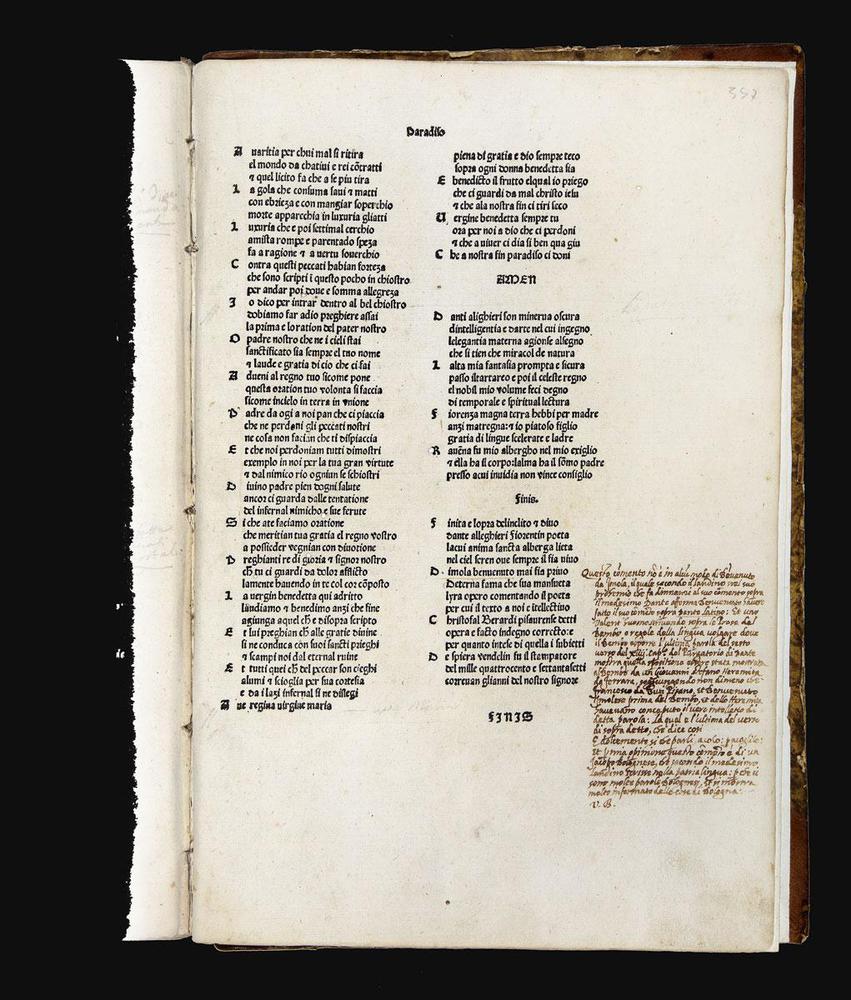 357
Paradiso
A uaritia per chui mal si ritira
el mondo da chatiui e rei cõtratti
⁊ quel licito fa che a se piu tira
L a gola che consuma saui ⁊ matti
con ebrieza e con mangiar soperchio
morte apparechia in luxuria gliatti
L uxuria che e poi settimal cerchio
amista rompe e parentado speza
fa a ragione ⁊ a uertu souerchio
C ontra questi peccati habian forteza
che sono scripti ĩ questo pocho in chiostro
per andar poi doue e somma allegreza
I o dico per intrar dentro al bel chiostro
dobiamo far adio preghiere assai
la prima e loration del pater nostro
O padre nostro che ne i cieli stai
sanctificato sia sempre el tuo nome
⁊ laude e gratia di cio che ci fai
A dueni al regno tuo sicome pone
questa oration tuo volonta si faccia
sicome incielo in terra in vnione
P adre da ogi a noi pan che ci piaccia
che ne perdoni gli peccati nostri
ne cosa non facian che ti dispiaccia
E t che noi perdoniam tutti dimostri
exemplo in noi per la tua gran virtute
⁊ dal nimico rio ogniun se schiostri
D iuino padre pien dogni salute
ancor ci guarda dalle tentatione
del infernal nimicho e sue ferute
S i che ate faciamo oratione
che meritian tua gratia el regno vostro
a posseder vegnian con diuotione
P reghianti re di gloria ⁊ signor nostro
ch̃ tu ci guardi da dolor afflicto
lamente hauendo in te col cor cõposto
L a vergin benedetta qui adritto
laudiamo ⁊ benedimo anzi che fine
agiunga aquel ch̃ e disopra scripto
E t lui preghian ch̃ alle gratie diuine
si ne conduca con suoi sancti prieghi
⁊ scampi noi dal eternal ruine
E t tutti quei ch̃ del peccar son cieghi
alumi ⁊ scioglia per sua cortesia
e da i lazi infernal si ne dislegi
A ue regina virgine maria
piena di gratia e dio sempre teco
sopra ogni donna benedetta sia
E benedicto il frutto elqual io priego
che ci guardi da mal christo iesu
⁊ che ala nostra fin ci tiri seco
V ergine benedetta sempre tu
ora per noi a dio che ci perdoni
⁊ che a uiuer ci dia si ben qua giu
C he a nostra fin paradiso ci doni
AMEN
D anti alighieri son minerua oscura
dintelligentia e darte nel cui ingegno
lelegantia materna agionse alsegno
che si tien che miracol de natura
L alta mia fantasia prompta e sicura
passo iltartareo e poi il celeste regno
el nobil mio volume feci degno
di temporale e spiritual lectura
F iorenza magna terra hebbi per madre
anzi matregna: ⁊ io piatoso figlio
gratia di lingue scelerate e ladre
R auẽna fu mio albergho nel mio exiglio
⁊ ella ha il corpo: lalma ha il sõmo padre
presso acui inuidia non vince consiglio
Finis.
F inita e lopra delinclito ⁊ diuo
dante alleghieri Fiorentin poeta
lacui anima sancta alberga lieta
nel ciel seren oue sempre il fia viuo
D . imola benuenuto mai fia priuo
Deterna fama che sua mansueta
lyra opero comentando il poeta
per cui il texto a noi e intellectiuo
C hristofal Berardi pisaurense detti
opera e facto indegno correctore
per quanto intese di quella i subietti
D e spiera vendelin fu il stampatore
del mille quattrocento e settantasetti
correuan glianni del nostro signore
FINIS
Questo comento nõ è in alcũ modo di Benuenuto
da Imola, il quale secondo il Landino nel suo
il medesimo Dante afferma Benuenuto hauere
fatto il suo comento sopra Dante latino: Et uno
ualente huomo scriuendo sopra le Prose del
Bembo o regole della lingua volgare doue
il Bembo espone l'ultima parola del sesto
verso del
Purgatorio di Dante
mostra quella
al Bembo da un Giouanni
da Ferrara, soggiungendo non dimeno che
Francesco da Buti Pisano, et Benuenuto
Imolese prima del Bembo,
detta parola. La qual è l'ultima del verso
di sopra detto, che dice così
E dolcemente sì che parli acolo:
Et prima
questo comento è di un
Jacopo bolognese, che secondo il medesimo
Landino scrisse nella patria lingua: perche vi
sono molte parole Bolognesi, et si mostra
molto informato delle cose di Bologna.
V. B.